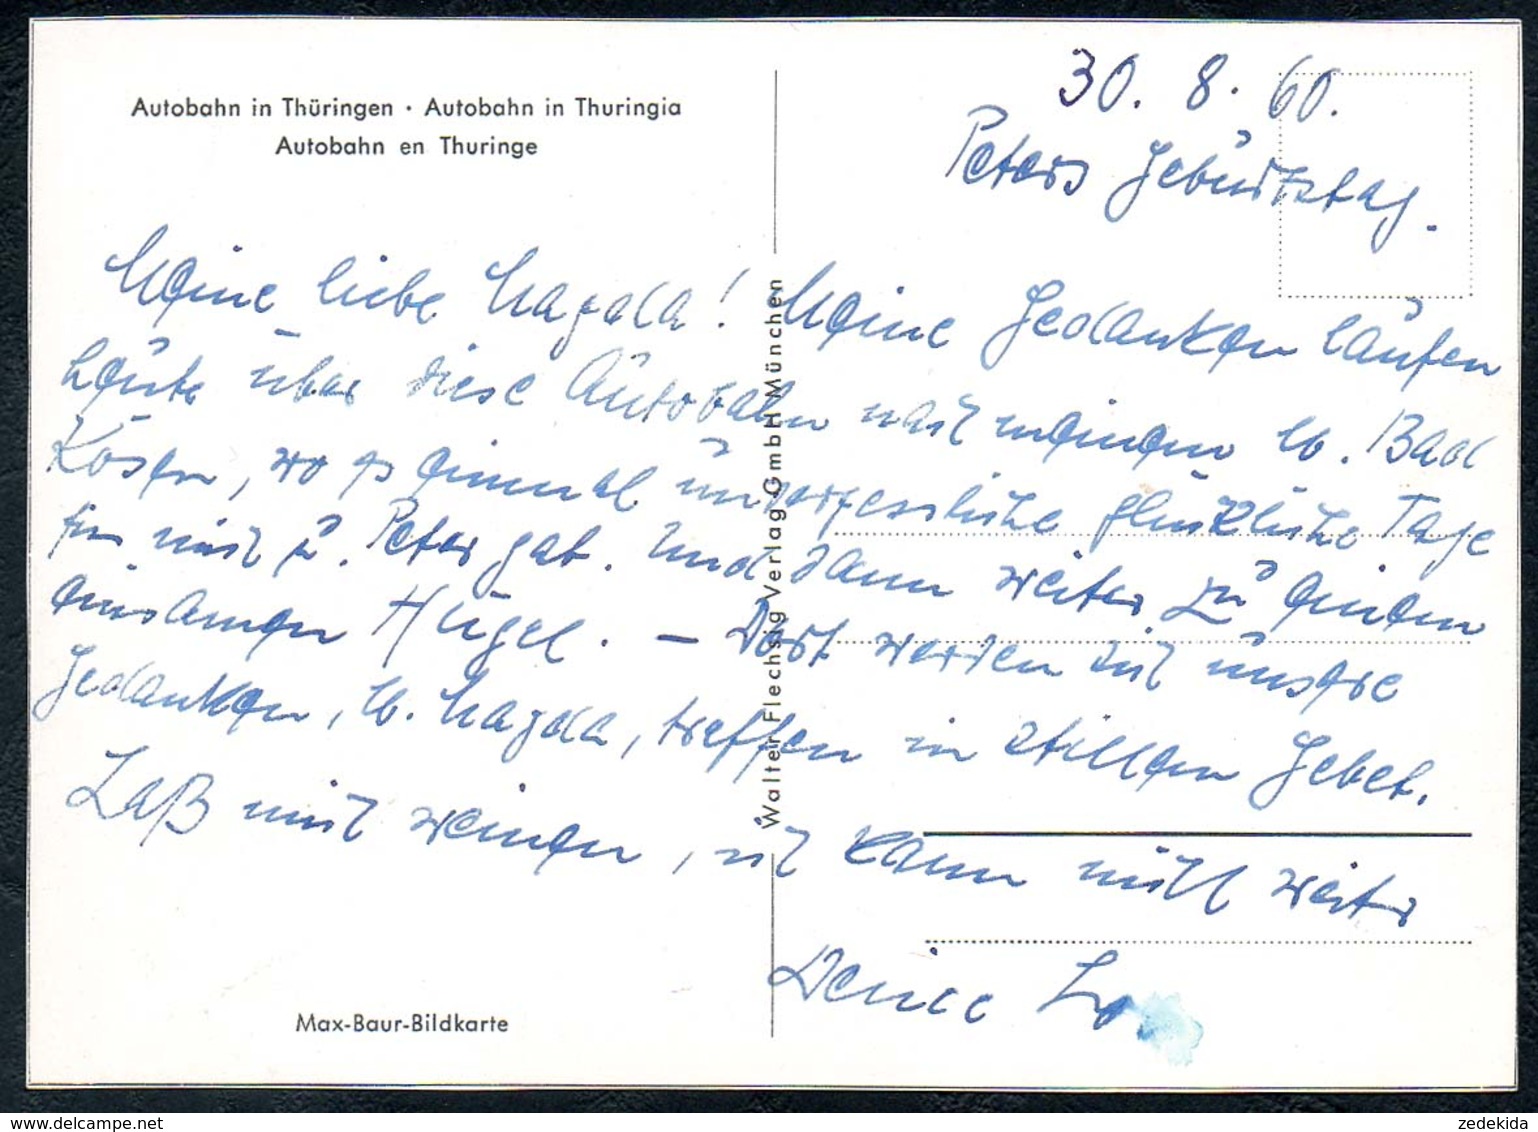 Autobahn in Thüringen · Autobahn in Thuringia
Autobahn en Thuringe
30. 8. 60.
Peters Geburtstag.
Meine liebe Magda! Meine Gedanken laufen
heute über diese Autobahn nach meinem lb. Bad
Kösen, wo es einmal unvergessliche glückliche Tage
für mich u. Peter gab. Und dann weiter zu einem
einsamen Hügel. – Dort werden sich unsere
Gedanken, lb. Magda, treffen in stillem Gebet.
Laß mich weinen, ich kann nicht weiter
Deine Lo
Walter Flechsig Verlag GmbH München
Max-Baur-Bildkarte
delcampe.net
zedekida